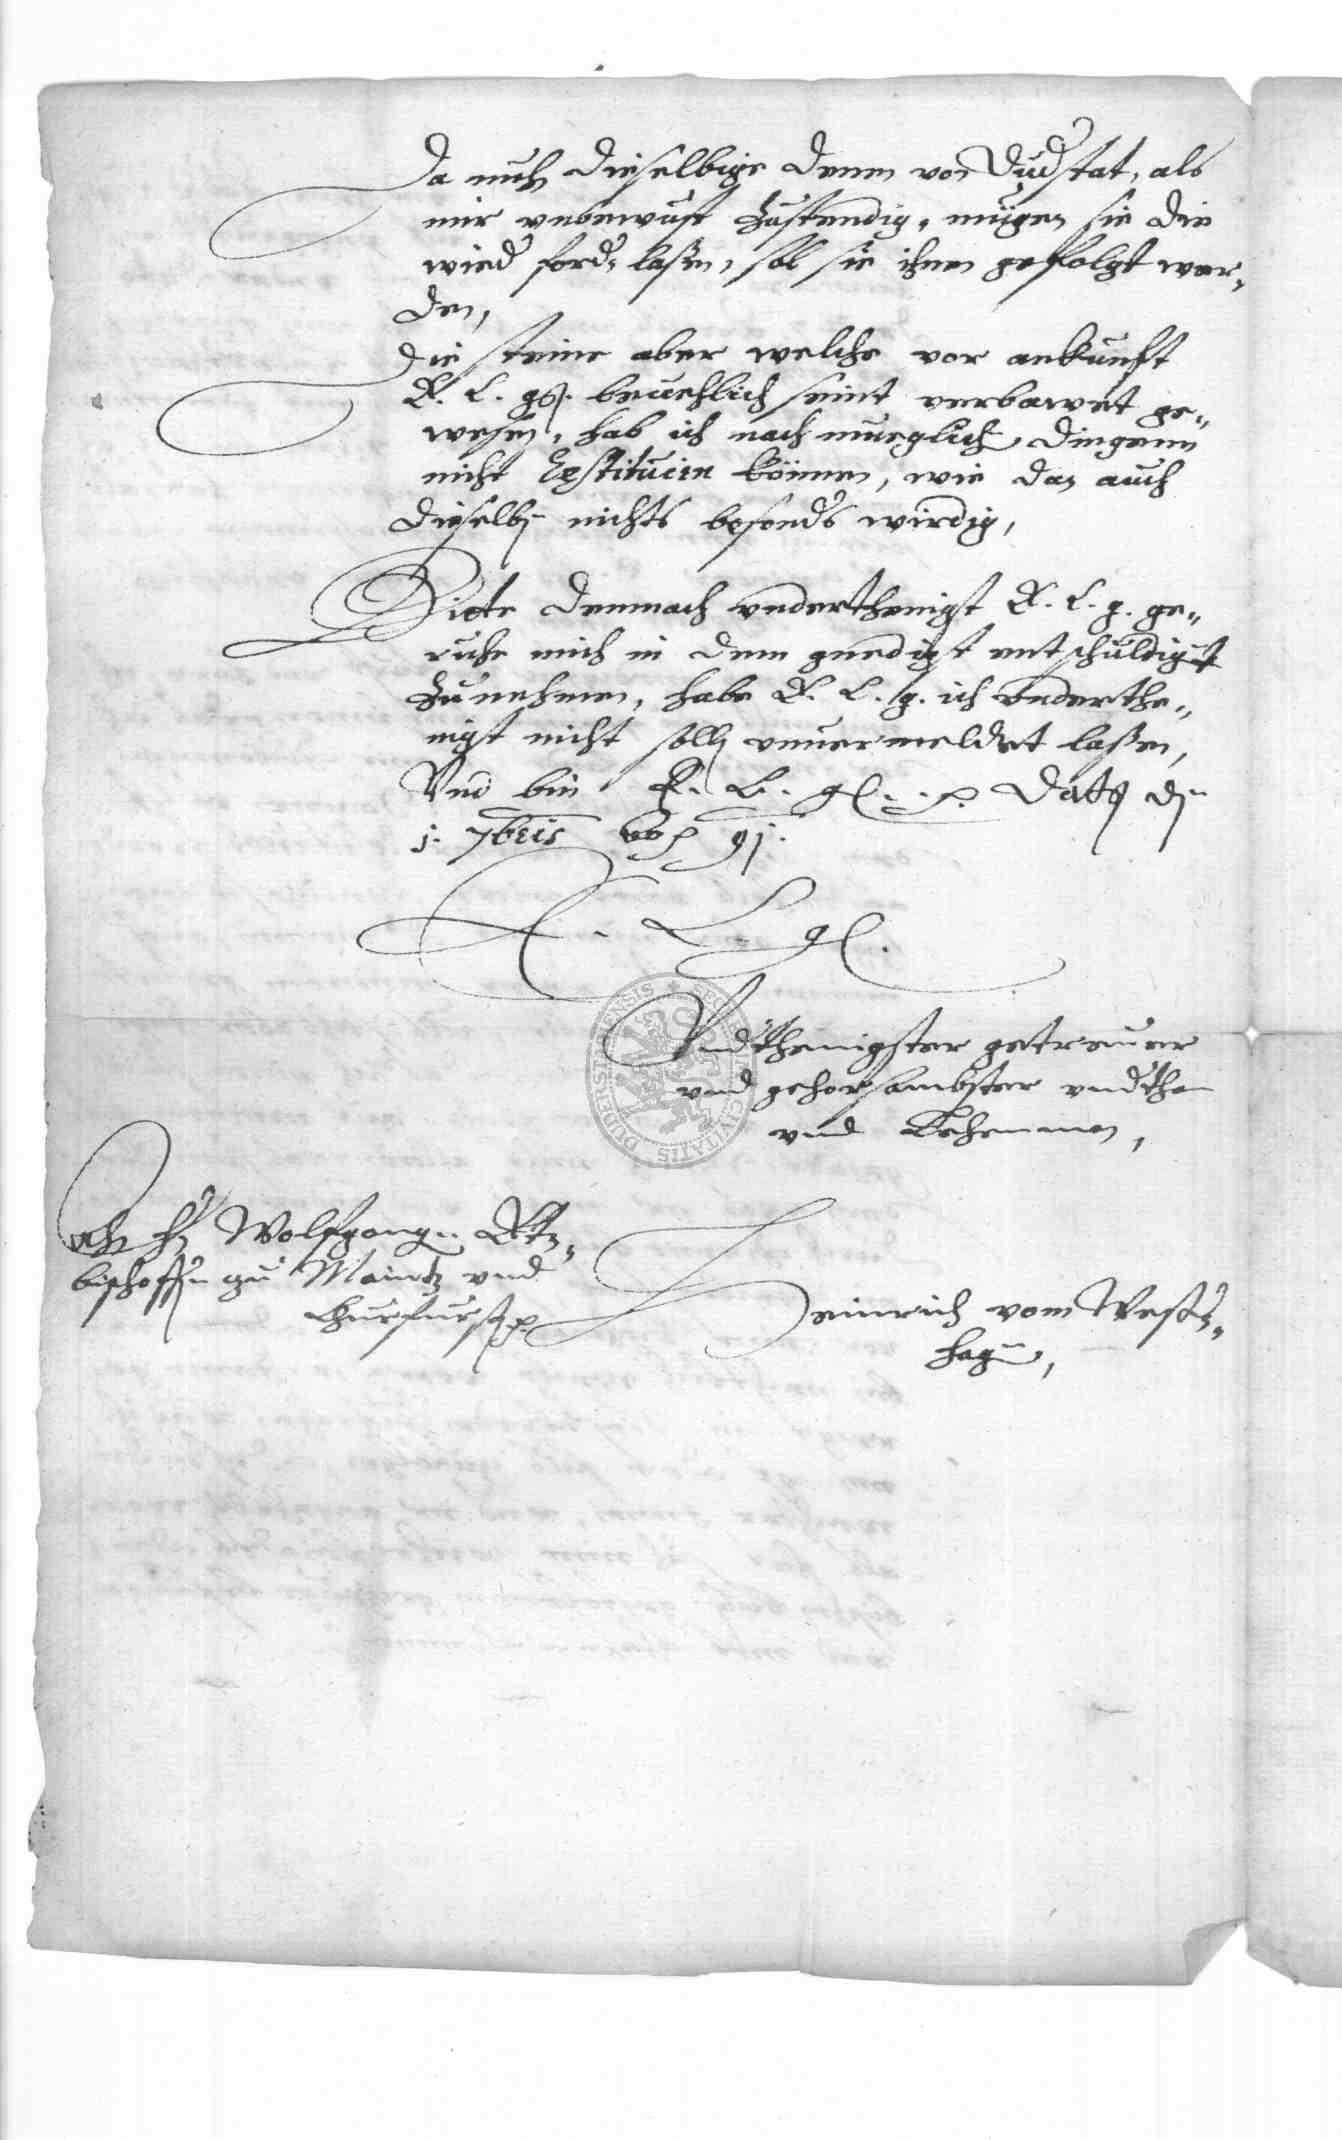 Da nuhn dieselbige denen von Dud'stat, als
mir unbewust zustendig, mügen sie die
wied' ford'n laßen, sol sie ihnen gefolgt wer„
den,
Die steine aber welche vor ankunft
E. C. gh. beuehlich seint verbawet ge„
wesen, hab ich nach mueglichen dingenn
nicht Restituirn können, wie dan auch
dieselben nichts besond's wirdig,
Bitte demnach underthenigst E. C. g. ge„
ruhe mich in dem gnedigst entschuldigt
zu nehmen, habe E. C. g. ich underthe„
nigst nicht sollen unuermeldet laßen,
Und bin E. C. g. Datum den
j. 7bris 91.
E. C. g.
Und'thenigster getreuer
und gehorsambster und'than
und Lehenman,
Wolfgang Ertz„
bischoffen zu Maintz und
Churfurst
Heinrich vom Western„
hagen,
SECRETUM CIVITATIS DUDERSTADENSIS